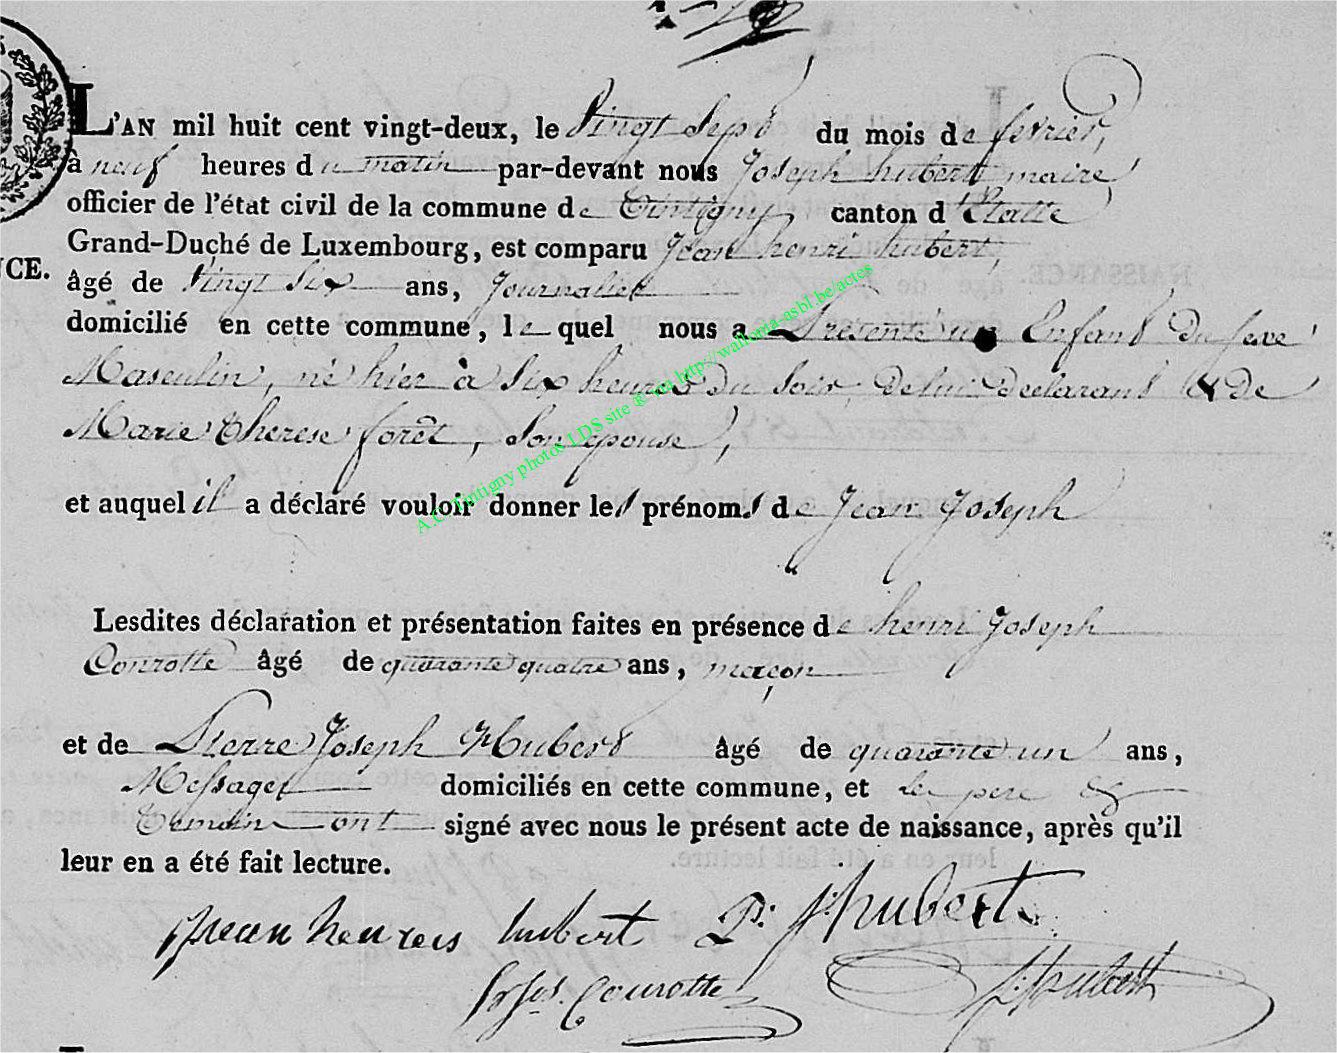 L'AN mil huit cent vingt-deux, le Vingt Sept du mois de fevrier,
à neuf heures du matin par-devant nous Joseph hubert maire
officier de l'état civil de la commune de Tintigny canton d'Etalle
Grand-Duché de Luxembourg, est comparu Jean henri hubert,
NCE. âgé de Vingt Six ans, Journalier
domicilié en cette commune, lequel nous a Présenté un Enfant Du sexe
Masculin, né hier à Six heures Du Soir, De lui Declarant & De
Marie Therese forêt, Son epouse,
et auquel il a déclaré vouloir donner les prénoms de Jean Joseph
Lesdites déclaration et présentation faites en présence de henri Joseph
Courotte âgé de quarante quatre ans, maçon
et de Pierre Joseph Hubert âgé de quarante un ans,
Messager domiciliés en cette commune, et le pere &
Temoin ont signé avec nous le présent acte de naissance, après qu'il
leur en a été fait lecture.
jean henry hubert P. J. hubert
Courotte J. hubert
A.C. Tintigny photos LDS site ® via http://wallonia-asbl.be/actes